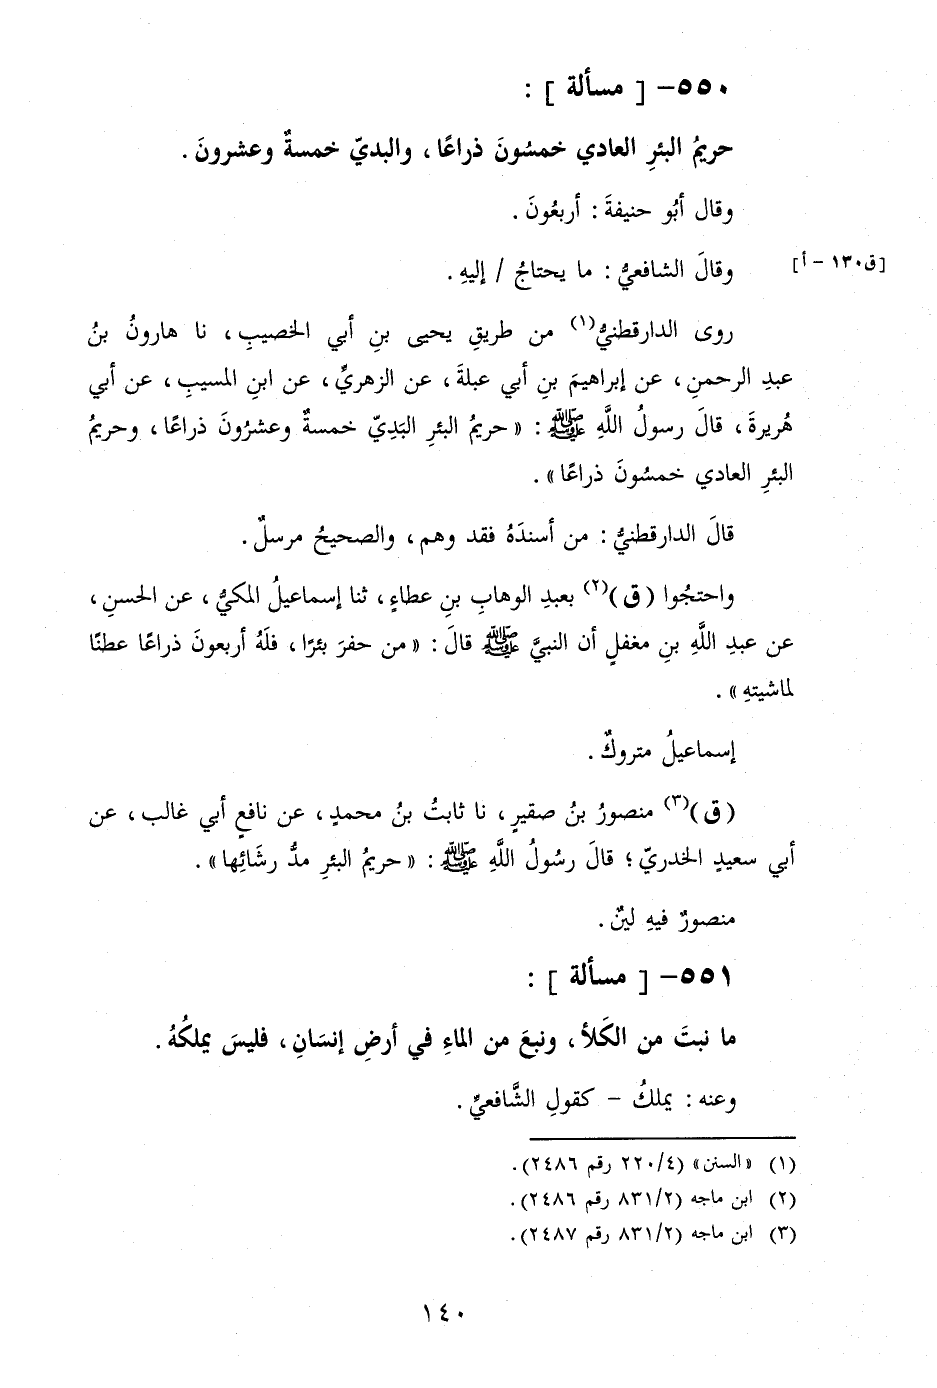 ٥٥٠- [ مسألة ] :
حريمُ البئرِ العادي خمسُونَ ذراعًا ، والبديّ خمسةٌ وعشرونَ .
وقال أبُو حنيفةَ : أربعُونَ .
وقالَ الشافعيُّ : ما يحتاجُ / إليهِ .
[ق١٣٠ - أ]
روى الدارقطنيُّ(١) من طريقِ يحيى بنِ أبي الخصيبِ ، نا هارونُ بنُ
عبدِ الرحمنِ ، عن إبراهيمَ بنِ أبي عبلةَ ، عن الزهريِّ ، عن ابنِ المسيبِ ، عن أبي
هُريرةَ ، قالَ رسولُ اللَّهِ ﷺ : « حريمُ البئرِ البَدِيّ خمسةٌ وعشرُونَ ذراعًا ، وحريمُ
البئرِ العادي خمسُونَ ذراعًا » .
قالَ الدارقطنيُّ : من أسندَهُ فقد وهم ، والصحيحُ مرسلٌ .
واحتجُوا (ق)(٢) بعبدِ الوهابِ بنِ عطاءٍ ، ثنا إسماعيلُ المكيُّ ، عن الحسنِ ،
عن عبدِ اللَّهِ بنِ مغفلٍ أن النبيَّ ﷺ قالَ : « من حفرَ بئرًا ، فلَهُ أربعونَ ذراعًا عطنًا
لماشيتهِ » .
إسماعيلُ متروكٌ .
(ق)(٣) منصورُ بنُ صقيرٍ ، نا ثابتُ بنُ محمدٍ ، عن نافعٍ أبي غالب ، عن
أبي سعيدٍ الخدريّ ؛ قالَ رسُولُ اللَّهِ ﷺ : « حريمُ البئرِ مدُّ رشَائِها » .
منصورٌ فيهِ لينٌ .
٥٥١- [ مسألة ] :
ما نبتَ من الكَلأ ، ونبعَ من الماءِ في أرضِ إنسَانِ ، فليسَ يملكُهُ .
وعنه : يملكُ - كقولِ الشَّافعيِّ .
(١) « السنن » (٢٢٠/٤ رقم ٢٤٨٦) .
(٢) ابن ماجه (٨٣١/٢ رقم ٢٤٨٦) .
(٣) ابن ماجه (٨٣١/٢ رقم ٢٤٨٧) .
١٤٠